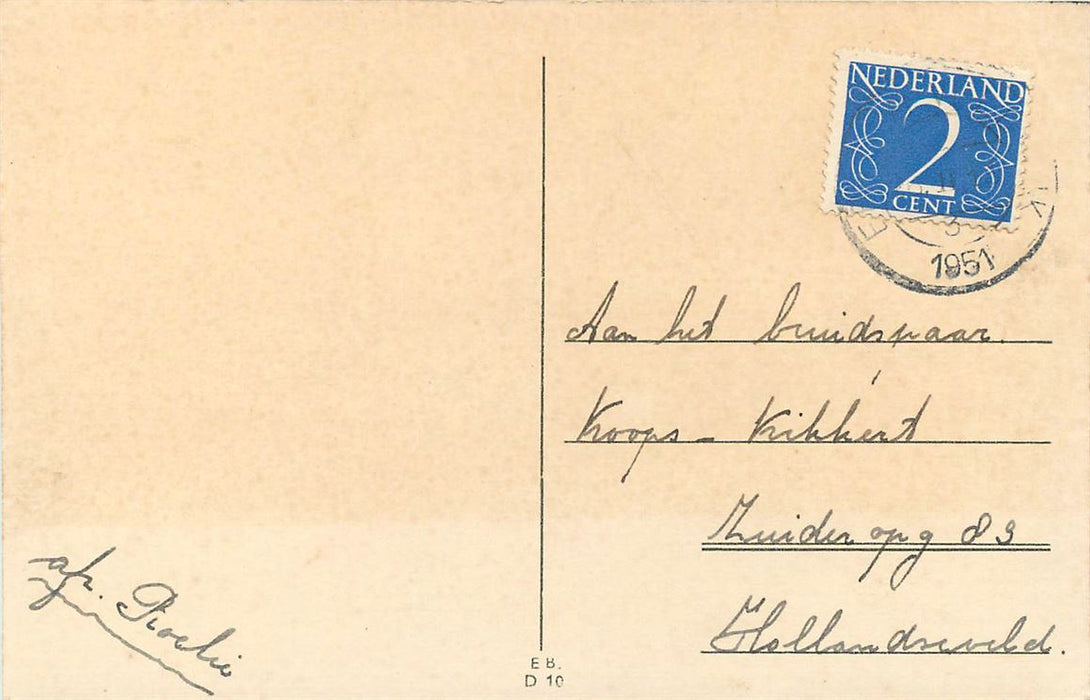 NEDERLAND
2
CENT
3
1951
Aan het bruidspaar.
Koops - Kikkert
Zuideropg 83
Hollandscheveld.
afz. Roelie
E B.
D 10